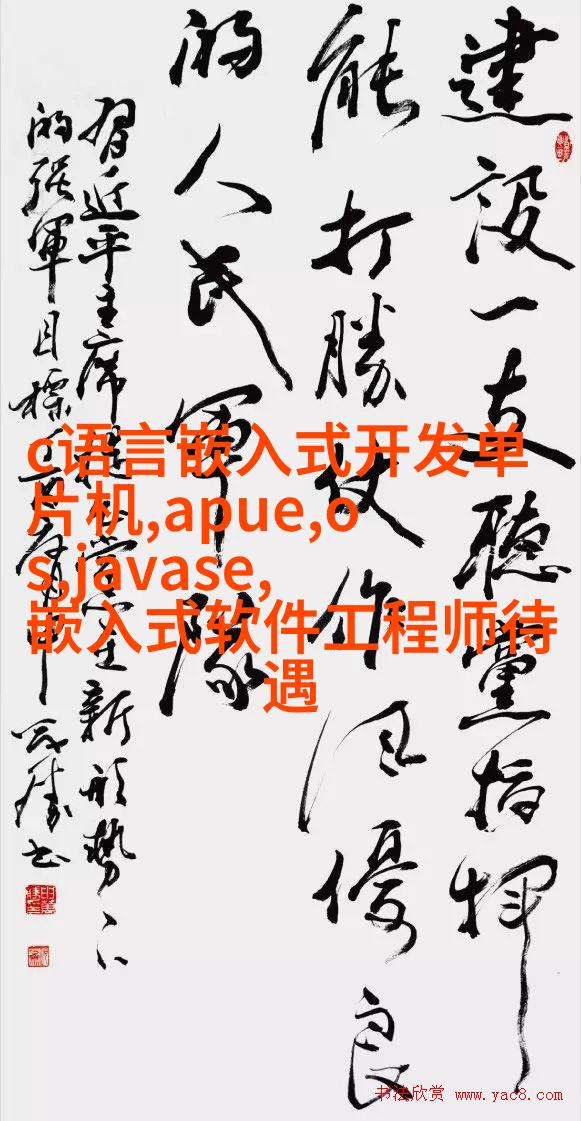 建設一支聽黨指揮
能打勝仗作風優良
的人民軍隊
習近平主席提出黨在新形勢下
的强軍目標
c语言嵌入式开发单
片机,apue,o
s,javase,
嵌入式软件工程师待
遇
书法欣赏 www.yac8.com